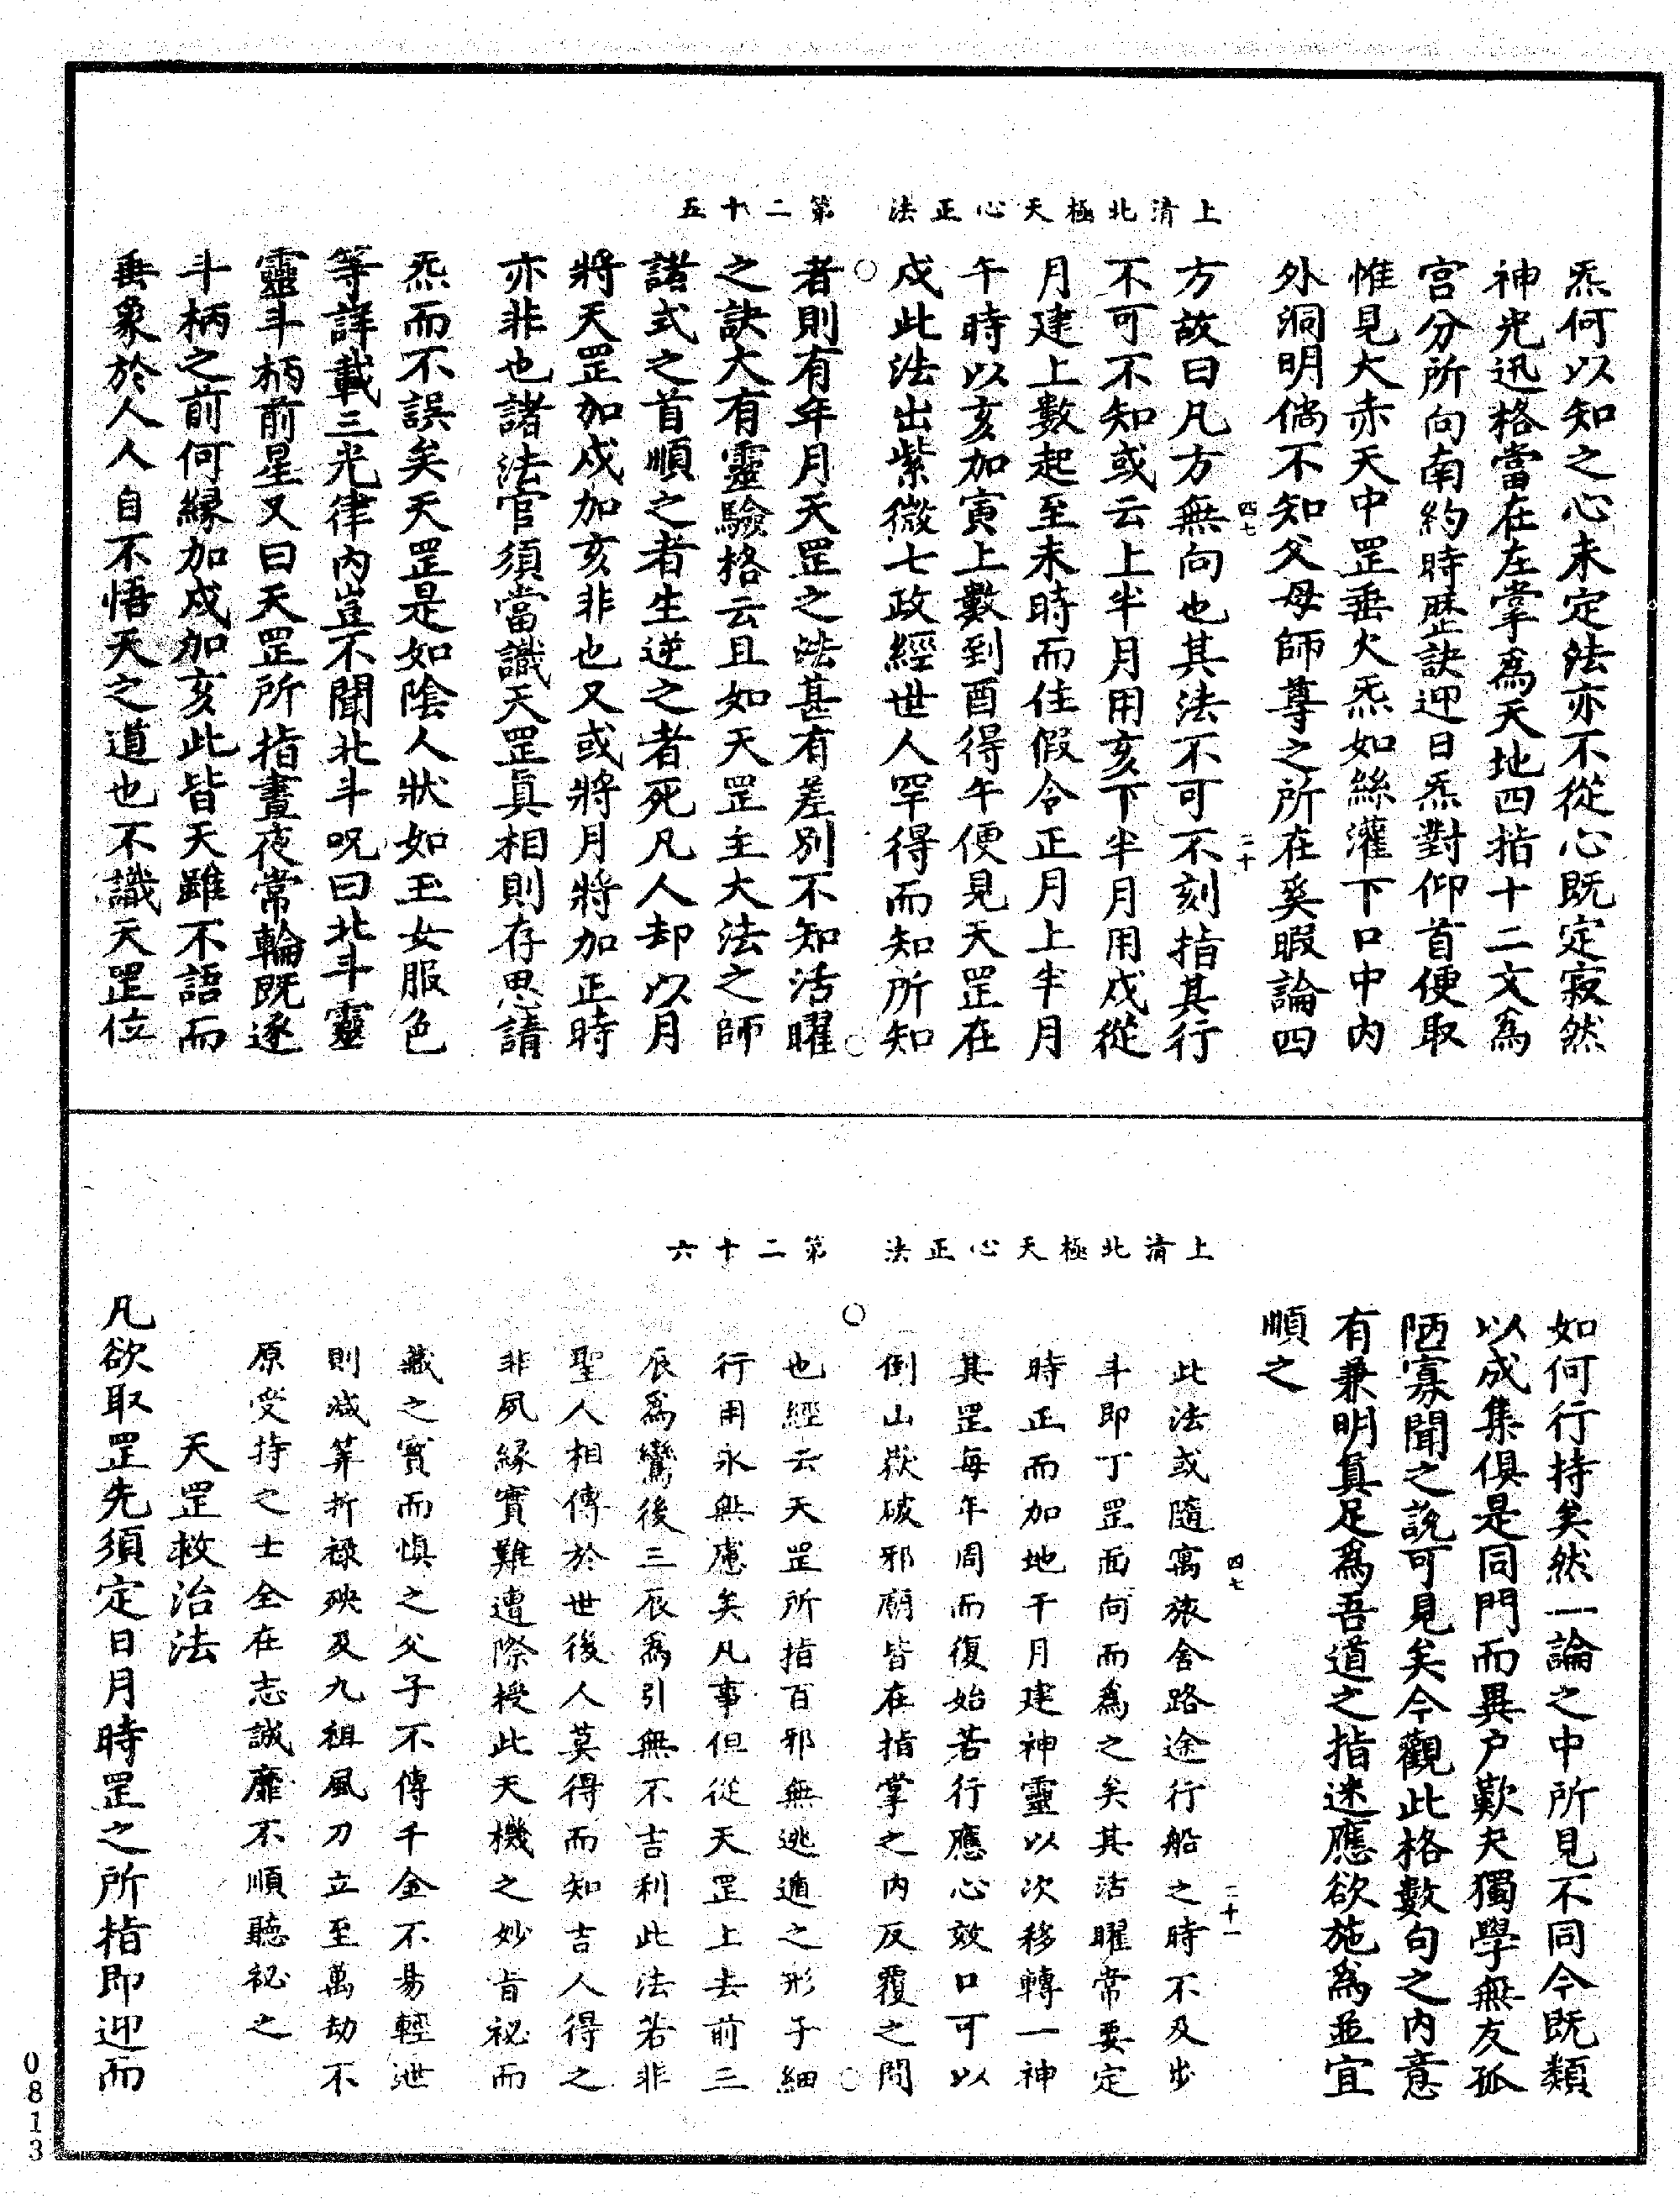 上清北極天心正法　第二十五
炁何以知之心未定法亦不從心既定寂然
神光迅格當在左掌爲天地四指十二文爲
宮分所向南約時歷訣迎日炁對仰首便取
惟見大赤天中罡垂火炁如絲灌下口中内
外洞明倘不知父母師尊之所在奚暇論四
四七
二十
方故曰凡方無向也其法不可不刻指其行
不可不知或云上半月用亥下半月用戍從
月建上數起至未時而住假令正月上半月
午時以亥加寅上數到酉得午便見天罡在
戍此法出紫微七政經世人罕得而知所知
者則有年月天罡之法甚有差别不知活曜
之訣大有靈驗格云且如天罡主大法之師
諸式之首順之者生逆之者死凡人却以月
將天罡加戍加亥非也又或將月將加正時
亦非也諸法官須當識天罡眞相則存思請
炁而不誤矣天罡是如陰人狀如玉女服色
等詳載三光律内豈不聞北斗呪曰北斗靈
靈斗柄前星又曰天罡所指晝夜常輪既逐
斗柄之前何緣加戍加亥此皆天雖不語而
垂象於人人自不悟天之道也不識天罡位
上清北極天心正法　第二十六
如何行持矣然一論之中所見不同今既類
以成集俱是同門而異户歎夫獨學無友孤
陋寡聞之説可見矣今觀此格數句之内意
有兼明眞足爲吾道之指迷應欲施爲並宜
順之
四七
二十一
此法或隨寓旅舍路途行船之時不及步
斗即丁罡面向而爲之矣其活曜常要定
時正而加地干月建神靈以次移轉一神
其罡每年周而復始若行應心效口可以
倒山嶽破邪廟皆在指掌之内反覆之間
也經云天罡所指百邪無逃遁之形子細
行用永無慮矣凡事但從天罡上去前三
辰爲鸞後三辰爲引無不吉利此法若非
聖人相傳於世後人莫得而知吉人得之
非夙緣實難遭際授此天機之妙旨祕而
藏之寳而慎之父子不傳千金不易輕泄
則减筭折禄殃及九祖風刀立至萬劫不
原受持之士全在志誠靡不順聽祕之
天罡救治法
凡欲取罡先須定日月時罡之所指即迎而
0813